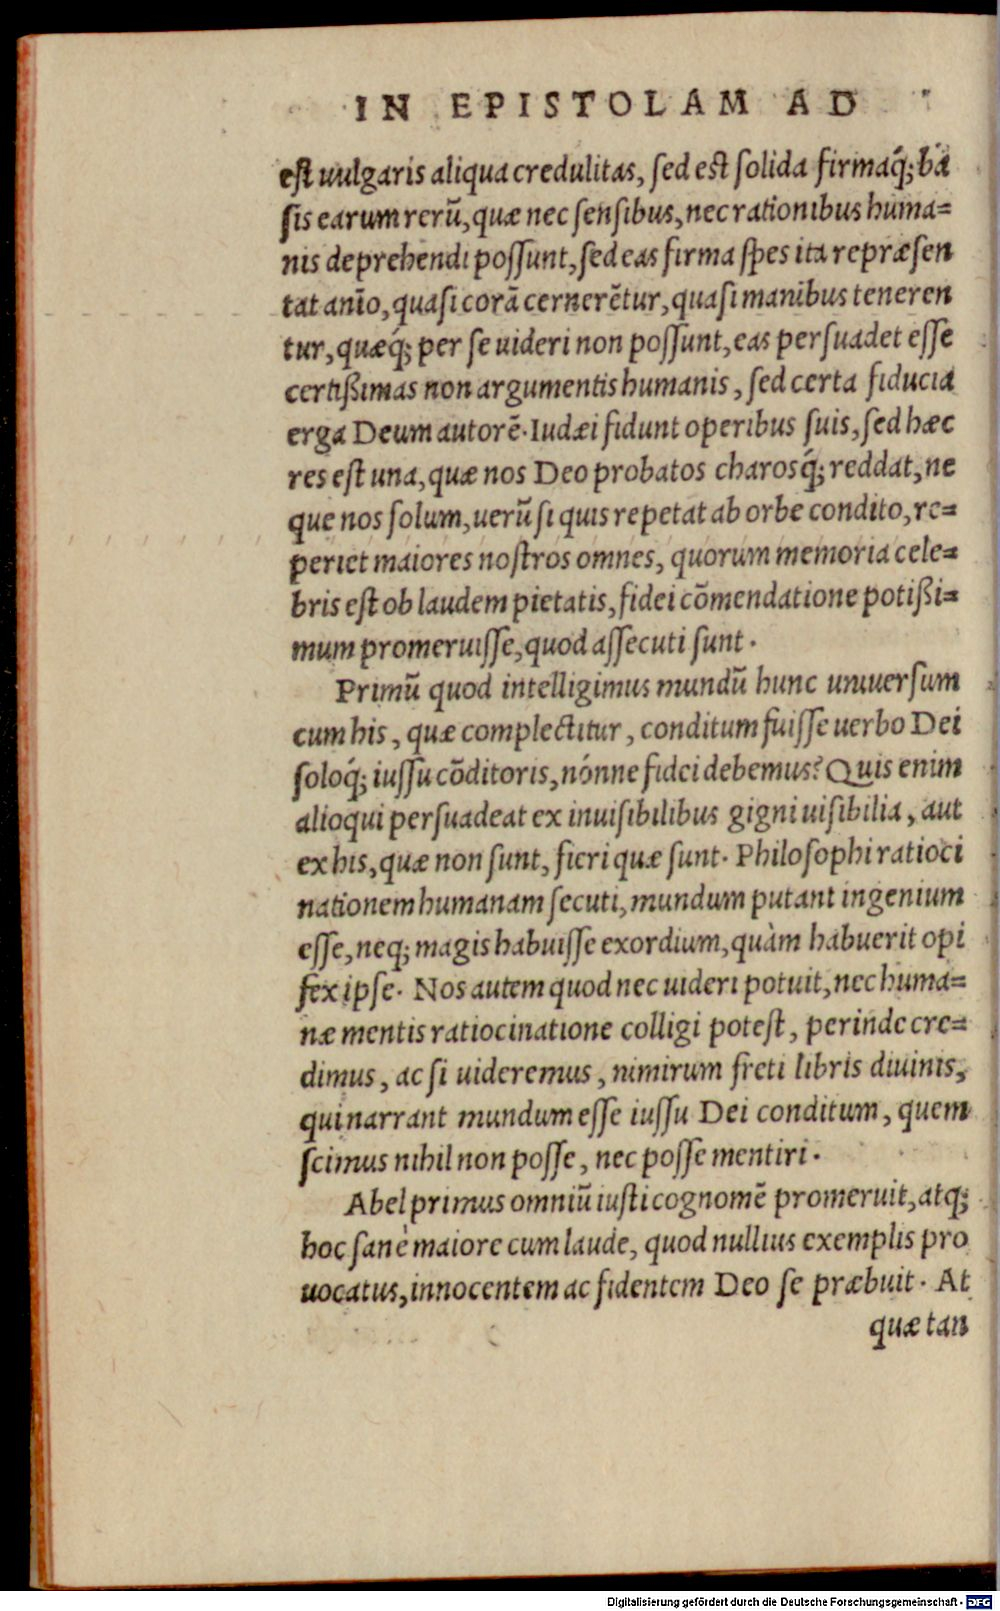 IN EPISTOLAM AD
eſt uulgaris aliqua credulitas, ſed eſt ſolida firmaq́; ba
ſis earum rerū, quæ nec ſenſibus, nec rationibus huma=
nis deprehendi poſſunt, ſed eas firma ſpes ita repræſen
tat aīo, quaſi corā cernerētur, quaſi manibus teneren
tur, quæq́; per ſe uideri non poſſunt, eas perſuadet eſſe
certißimas non argumentis humanis, ſed certa fiducia
erga Deum autorē. Iudæi fidunt operibus ſuis, ſed hæc
res eſt una, quæ nos Deo probatos charosq́; reddat, ne
que nos ſolum, uerū ſi quis repetat ab orbe condito, re=
periet maiores noſtros omnes, quorum memoria cele=
bris eſt ob laudem pietatis, fidei cōmendatione potißi=
mum promeruiſſe, quod aſſecuti ſunt.
Primū quod intelligimus mundū hunc uniuerſum
cum his, quæ complectitur, conditum fuiſſe uerbo Dei
ſoloq́; iuſſu cōditoris, nónne fidei debemus? Quis enim
alioqui perſuadeat ex inuiſibilibus gigni uiſibilia, aut
ex his, quæ non ſunt, fieri quæ ſunt. Philoſophi ratioci
nationem humanam ſecuti, mundum putant ingenium
eſſe, neq; magis habuiſſe exordium, quàm habuerit opi
fex ipſe. Nos autem quod nec uideri potuit, nec huma=
næ mentis ratiocinatione colligi poteſt, perinde cre=
dimus, ac ſi uideremus, nimirum freti libris diuinis,
qui narrant mundum eſſe iuſſu Dei conditum, quem
ſcimus nihil non poſſe, nec poſſe mentiri.
Abel primus omniū iuſti cognomē promeruit, atq;
hoc ſanè maiore cum laude, quod nullius exemplis pro
uocatus, innocentem ac fidentem Deo ſe præbuit. At
quæ tan
Digitalisierung gefördert durch die Deutsche Forschungsgemeinschaft - DFG